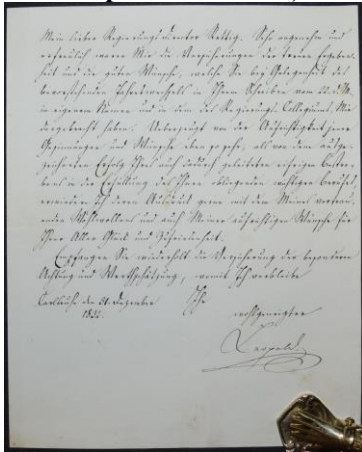 Mein lieber Regierungs Director Rettig. Sehr angenehm und
erfreulich waren Mir die Versicherungen der treuen Ergeben-
heit und die guten Wünsche, welche Sie bey Gelegenheit des
bevorstehenden Jahreswechsels in Ihrem Schreiben vom 22. d. M.
in eigenem Namen und in dem des Regierungs-Collegiums, Mir
dargebracht haben. Ueberzeugt von der Aufrichtigkeit jener
Gesinnungen und Wünsche eben so sehr, als von dem ausge-
zeichneten Erfolg Ihres auch dadurch geleiteten eifrigen Bestre-
bens in der Erfüllung des Ihnen obliegenden wichtigen Berufes,
erwiedere Ich deren Ausdruck gerne mit dem Meines
Wohlwollens und auch Meiner aufrichtigen Wünsche für
Ihrer Aller Glück und Zufriedenheit.
Empfangen Sie wiederholt die Versicherung der besondern
Achtung und Werthschätzung, womit Ich verbleibe
Carlsruhe den 31. Dezember Ihr
wohlgeneigter
Leopold